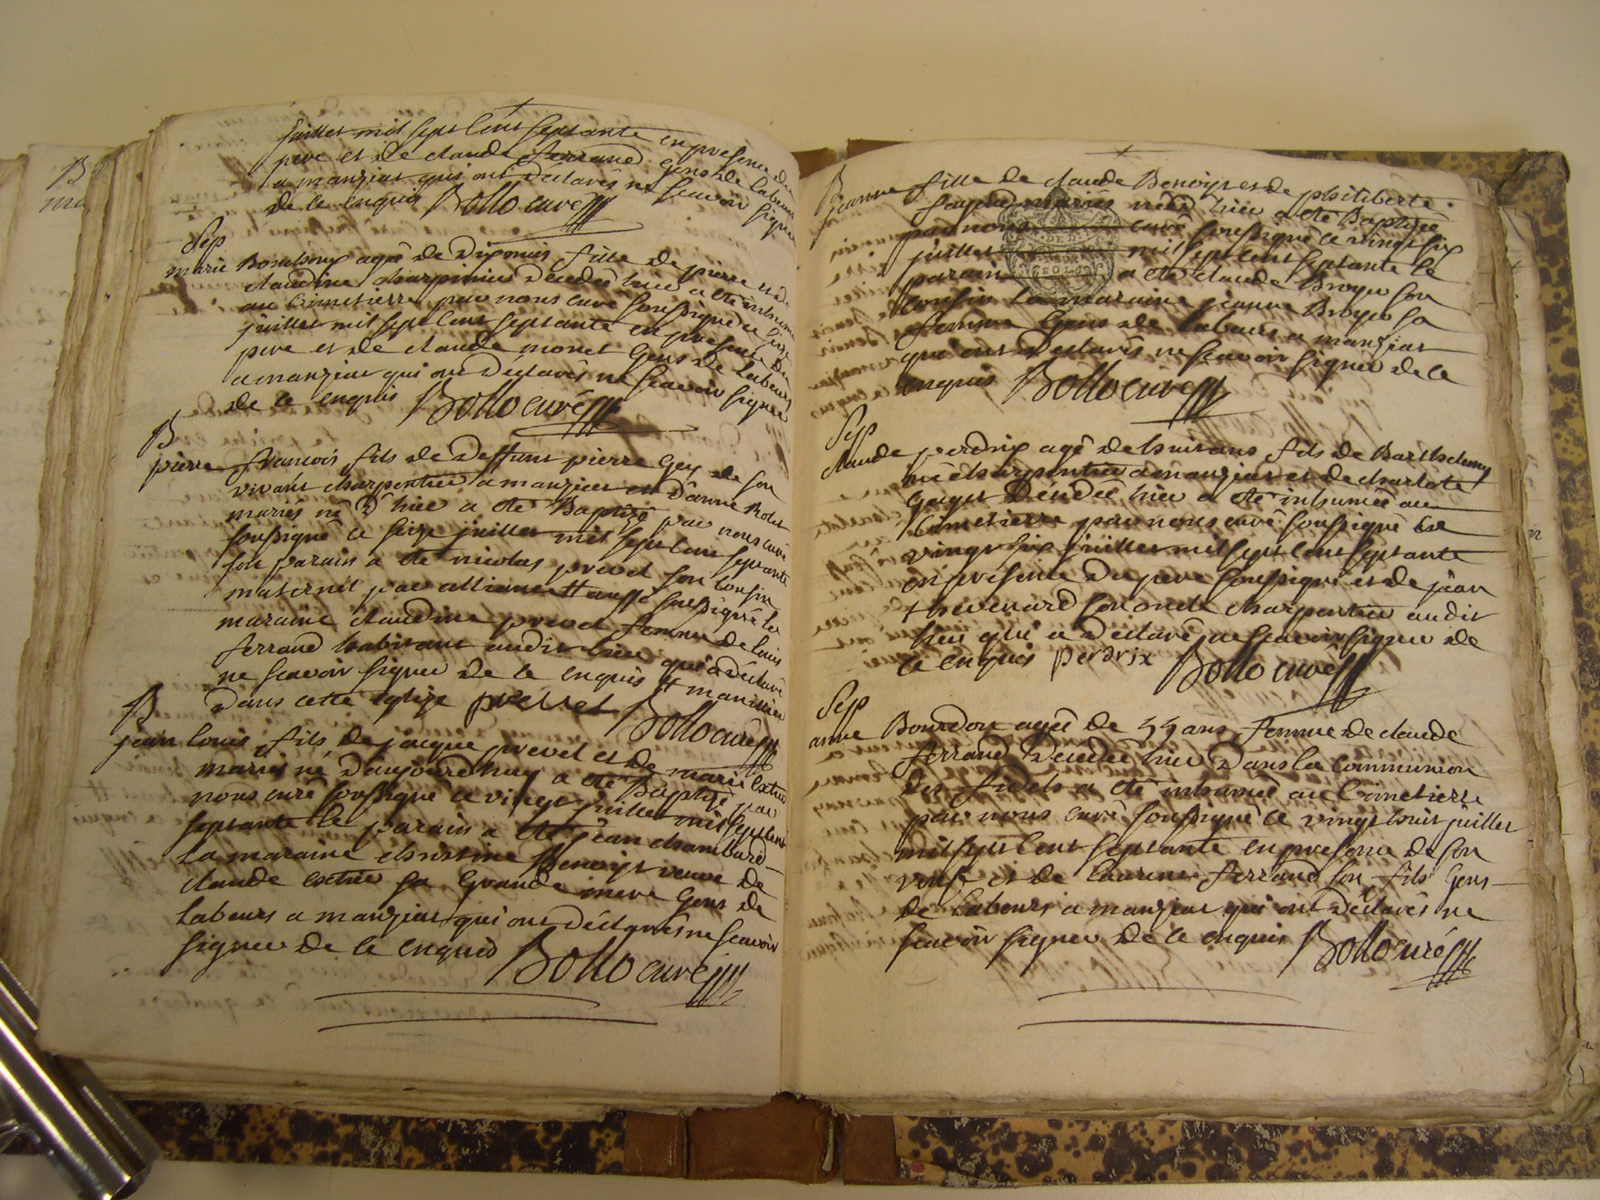 juillet mil sept cent septante en presence du
pere et de claude ferrand gens de labeurs
a manziat qui ont declarés ne scavoir signer
de ce enquis Bollo curé
Sep
marie Bourdon agée de dix mois fille de pierre et de
claudine charpentier decedée hier a eté inhumée
au Cimetierre par nous curé soussigné ce
juillet mil sept cent septante en presence du
pere et de claude monet gens de labeurs
a manziat qui ont declarés ne scavoir signer
de ce enquis Bollo curé
B
pierre francois fils de deffunt pierre Gey de son
vivant charpentier a manziat et d'anne Rolet
mariés né hier a eté Baptisé par nous curé
soussigné ce seize juillet mil sept cent septante
son parain a eté nicolas prevel son cousin
maternel par alliance aussi soussigné la
maraine claudine prevel femme de louis
ferrand habitant audit lieu qui a déclaré
ne scavoir signer de ce enquis
dans cette eglize prevel Bollo curé
B
jean louis fils de jacque prevel et de marie
mariés né d'aujourd'huy a eté Baptisé par
nous curé soussigné ce vingt juillet mil sept cent
septante le parain a eté jean chambard
la maraine christine Benoist veuve de
claude sa Grande mere Gens de
labeurs a manziat qui ont déclarés ne scavoir
signer de ce enquis Bollo curé
B
jeanne fille de claude Benoist et de philiberte
mariés née hier a eté Baptisée
par nous curé soussigné ce vingt six
juillet mil sept cent septante le
parain a eté claude Broyer son
cousin la maraine jeanne Broyer sa
femme Gens de labeurs a manziat
qui ont declarés ne scavoir signer de ce
enquis Bollo curé
Sep
claude perdrix agé de huit ans fils de Barthelemy
charpentier a manziat et de charlote
decedé hier a eté inhumé au
Cimetierre par nous curé soussigné ce
vingt six juillet mil sept cent septante
en présence du pere soussigné et de jean
thevenard son oncle charpentier audit
lieu qui a déclaré ne scavoir signer de
ce enquis perdrix Bollo curé
Sep
anne Bourdon agée de 55 ans femme de claude
ferrand decedée hier dans la communion
des fidels a eté inhumée au Cimetierre
par nous curé soussigné ce vingt huit juillet
mil sept cent septante en presence de son
veuf et de laurent ferrand son fils gens
de labeurs a manziat qui ont déclarés ne
scavoir signer de ce enquis Bollo curé